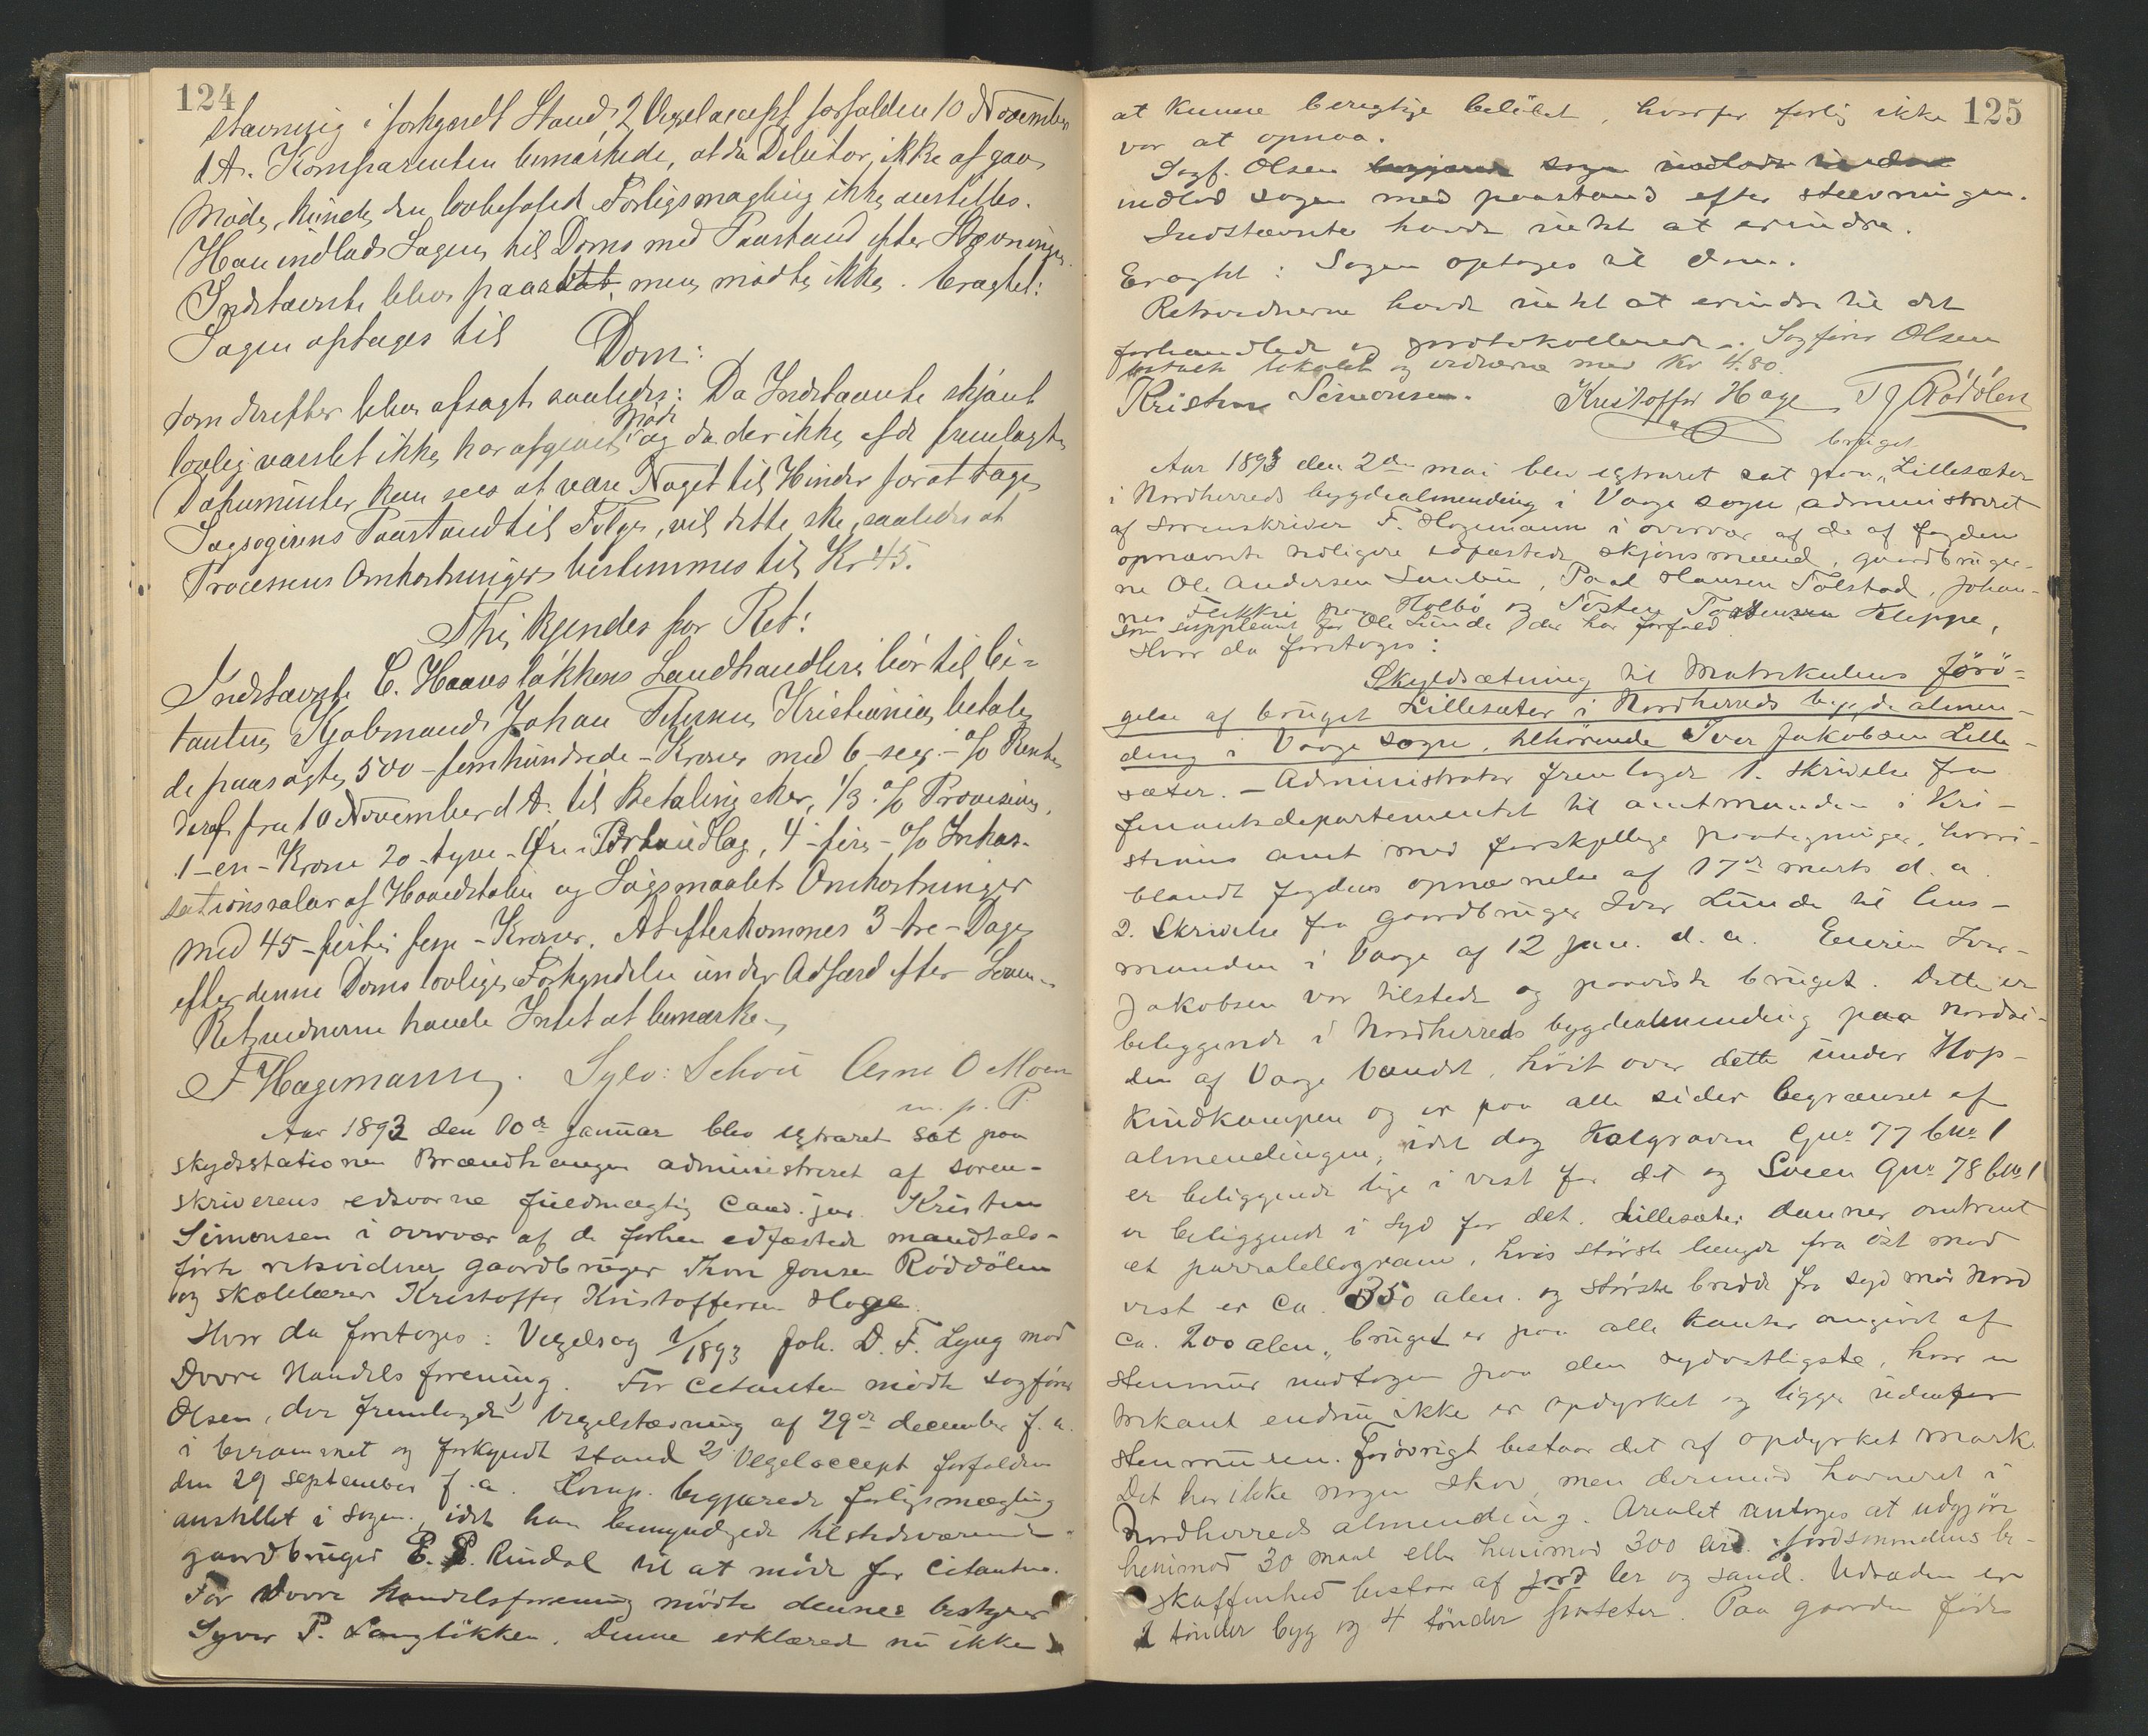 124
stævning i forkyndt Stand, 2, Vexelaccept forfalden 10 November
d.A. Komparenten bemærkede, at da Debitor ikke afgav
Møde, kunde den lovbefalede Forligsmægling ikke anstilles.
Han indlod Sagen til Doms med Paastand efter Stævningen.
Indstævnte blev paaraabt, men mødte ikke. Eragtet:
Sagen optages til
Dom:
som derefter blev afsagt saaledes: Da Indstævnte skjønt
lovlig varslet ikke har afgivet Møde og da der ikke af de fremlagte
Dokumenter kan sees at være Noget til Hinder for at tage
Sagsøgerens Paastand til Følge, vil dette ske, saaledes at
Processens Omkostninger bestemmes til Kr 45.
Thi kjendes for Ret:
Indstævnte C. Haavsløkkens Landhandleri bør til Ci-
tanten Kjøbmand Johan Petersen, Kristiania, betale
de paasøgte 500 - femhundrede - Kroner med 6 - sex - % Rente
deraf fra 10 November d.A. til Betaling sker, 1/3 % Provision,
1 - en - Krone 20 - tyve - Øre i Portoudlæg, 4 - fire - % Inkas-
sationssalær af Hovedstolen og Søgsmaalets Omkostninger
med 45 - førti fem - Kroner. At efterkommes 3 - tre - Dage
efter denne Doms lovlige Forkyndelse under Adfærd efter Loven.
Retsvidnerne havde Intet at bemærke.
F Hagemann. Sylv: Schou Arne O Moen
m. p. P.
Aar 1893 den 10de januar blev extraret sat paa
skydsstationen Brændhaugen administreret af soren-
skriverens edsvorne fuldmægtig cand. jur. Kristen
Simonsen i overvær af de forhen edfæstede mandtals-
førte retsvidner gaardbruger Thor Jonsen Röddölen
og skolelærer Kristoffer Kristoffersen Hage.
Hvor da foretoges: Vexelsag 1/1893 Joh. D. F. Lyng mod
Dovre Handelsforening. For citanten mødte sagfører
Olsen, der fremlagde 1) Vexelstævning af 29de december f. a.
i berammet og forkyndt stand 2) Vexelaccept forfalden
den 29 september f. a. Komp. begjærede forligsmægling
anstillet i sagen, idet han bemyndigede tilstedeværende
gaardbruger E. P. Rindal til at møde for citanten.
For Dovre Handelsforening mødte dennes bestyrer
Syver P. Langløkken. Denne erklærede nu ikke
125
at kunne berigtige beløbet, hvorfor forlig ikke
var at opnaa.
Sagf. Olsen begjærede sagen indlods
indlod sagen med paastand efter stævningen.
Indstævnte havde intet at erindre.
Eragtet: Sagen optages til dom.
Retsvidnerne havde intet at erindre til det
forhandlede og protokollerede. Sagfører Olsen
betalte lokalet og vidnerne med Kr 4.80.
Kristen Simonsen. Kristoffer Hage T J Röddölen
bruget
Aar 1893 den 2den mai blev extraret sat paa „Lillesæter
i Nordherreds bygdealmending i Vaage sogn administreret
af sorenskriver F. Hagemann i overvær af de af fogden
opnævnte tidligere edfæstede skjønsmænd, gaardbruger-
ne Ole Andersen Sunbu, Paal Hansen Tolstad, Johan-
nes Flekkøi paa Holbö og Tosten Tostensen Kleppe,
som suppleant for Ole Lunde, der har forfald
Hvor da foretoges:
Skyldsætning til Matrikulens forö-
gelse af bruget Lillesæter i Nordherreds bygdealmen-
ding i Vaage sogn, tilhörende Iver Jakobsen Lille-
sæter. - Administrator fremlagde 1. skrivelse fra
finantsdepartementet til amtmanden i Kri-
stians amt med forskjellige paategninger, hvori-
blandt fogdens opnævnelse af 17de marts d. a.
2. Skrivelse fra gaardbruger Iver Lunde til lens-
manden i Vaage af 12 jan. d. a. Eieren Iver
Jakobsen var tilstede og paaviste bruget. Dette er
beliggende i Nordherreds bygdealmending paa nordsi-
den af Vaage Vandet, höit over dette under Hop-
kindkampen og er paa alle sider begrænset af
almendingen, idet dog Kolgroven Gno 77 bno 1
er beliggende lige i vest for det og Sveen Gno 78 bno 1
er beliggende i syd for det. Lillesæter danner omtrent
et parralellogram, hvis störste længde fra öst mod
vest er ca. 350 alen og störste bredde fra syd mod Nord
ca. 200 alen, bruget er paa alle kanter omgivet af
stenmur undtagen paa den sydvestligste, hvor en
trekant endnu ikke er opdyrket og ligger udenfor
stenmuren. Forövrigt bestaar det af opdyrket mark.
Det har ikke nogen skov, men derimod havneret i
Nordherreds almending. Arealet antages at udgjöre
henimod 30 maal eller henimod 300 ar. Jordsmonnets be-
skaffenhed bestaar af jord ler og sand. Udsæden er
2 tönder byg og 4 tönder poteter. Paa gaarden födes